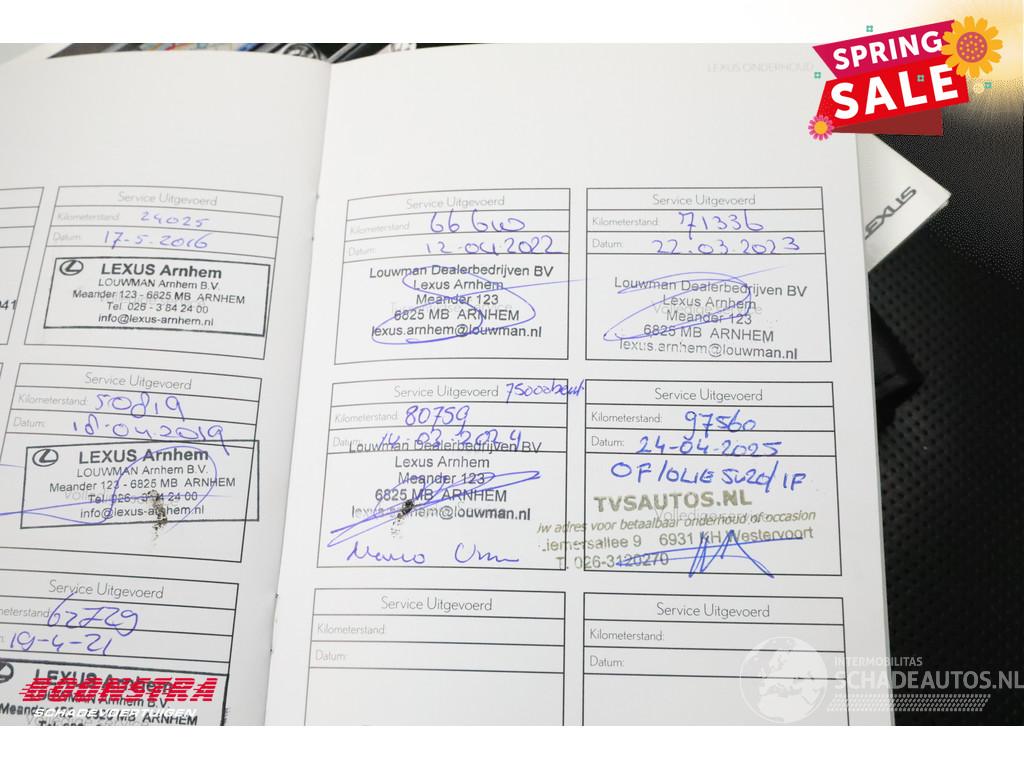 SPRING
SALE
LEXUS ONDERHOUD
LEXUS
Service Uitgevoerd
Kilometerstand: 24025
Datum: 17-5-2016
LEXUS Arnhem
LOUWMAN Arnhem B.V.
Meander 123 - 6825 MB ARNHEM
Tel. 026 - 3 84 24 00
info@lexus-arnhem.nl
Service Uitgevoerd
Kilometerstand: 50819
Datum: 18-04-2019
LEXUS Arnhem
LOUWMAN Arnhem B.V.
Meander 123 - 6825 MB ARNHEM
Tel. 026 - 3 84 24 00
info@lexus-arnhem.nl
Service Uitgevoerd
62729
19-4-21
LEXUS Arnhem
LOUWMAN Arnhem B.V.
6825 MB ARNHEM
Service Uitgevoerd
Kilometerstand: 66610
Datum: 12-04-2022
Louwman Dealerbedrijven BV
Lexus Arnhem
Meander 123
6825 MB ARNHEM
lexus.arnhem@louwman.nl
Service Uitgevoerd
Kilometerstand: 71336
Datum: 22-03-2023
Louwman Dealerbedrijven BV
Lexus Arnhem
Meander 123
6825 MB ARNHEM
lexus.arnhem@louwman.nl
Service Uitgevoerd 75000beurt
Kilometerstand: 80759
Datum: 14-02-2024
Louwman Dealerbedrijven BV
Lexus Arnhem
Meander 123
6825 MB ARNHEM
lexus.arnhem@louwman.nl
Service Uitgevoerd
Kilometerstand: 97560
Datum: 24-04-2025
OF/OLIE 5W20/IF
TVSAUTOS.NL
uw adres voor betaalbaar onderhoud of occasion
6931 KH Westervoort
T. 026-3120270
Service Uitgevoerd
Kilometerstand:
Datum:
Service Uitgevoerd
Kilometerstand:
Datum:
BOONSTRA
SCHADEVOERTUIGEN
INTERMOBILITAS
SCHADEAUTOS.NL